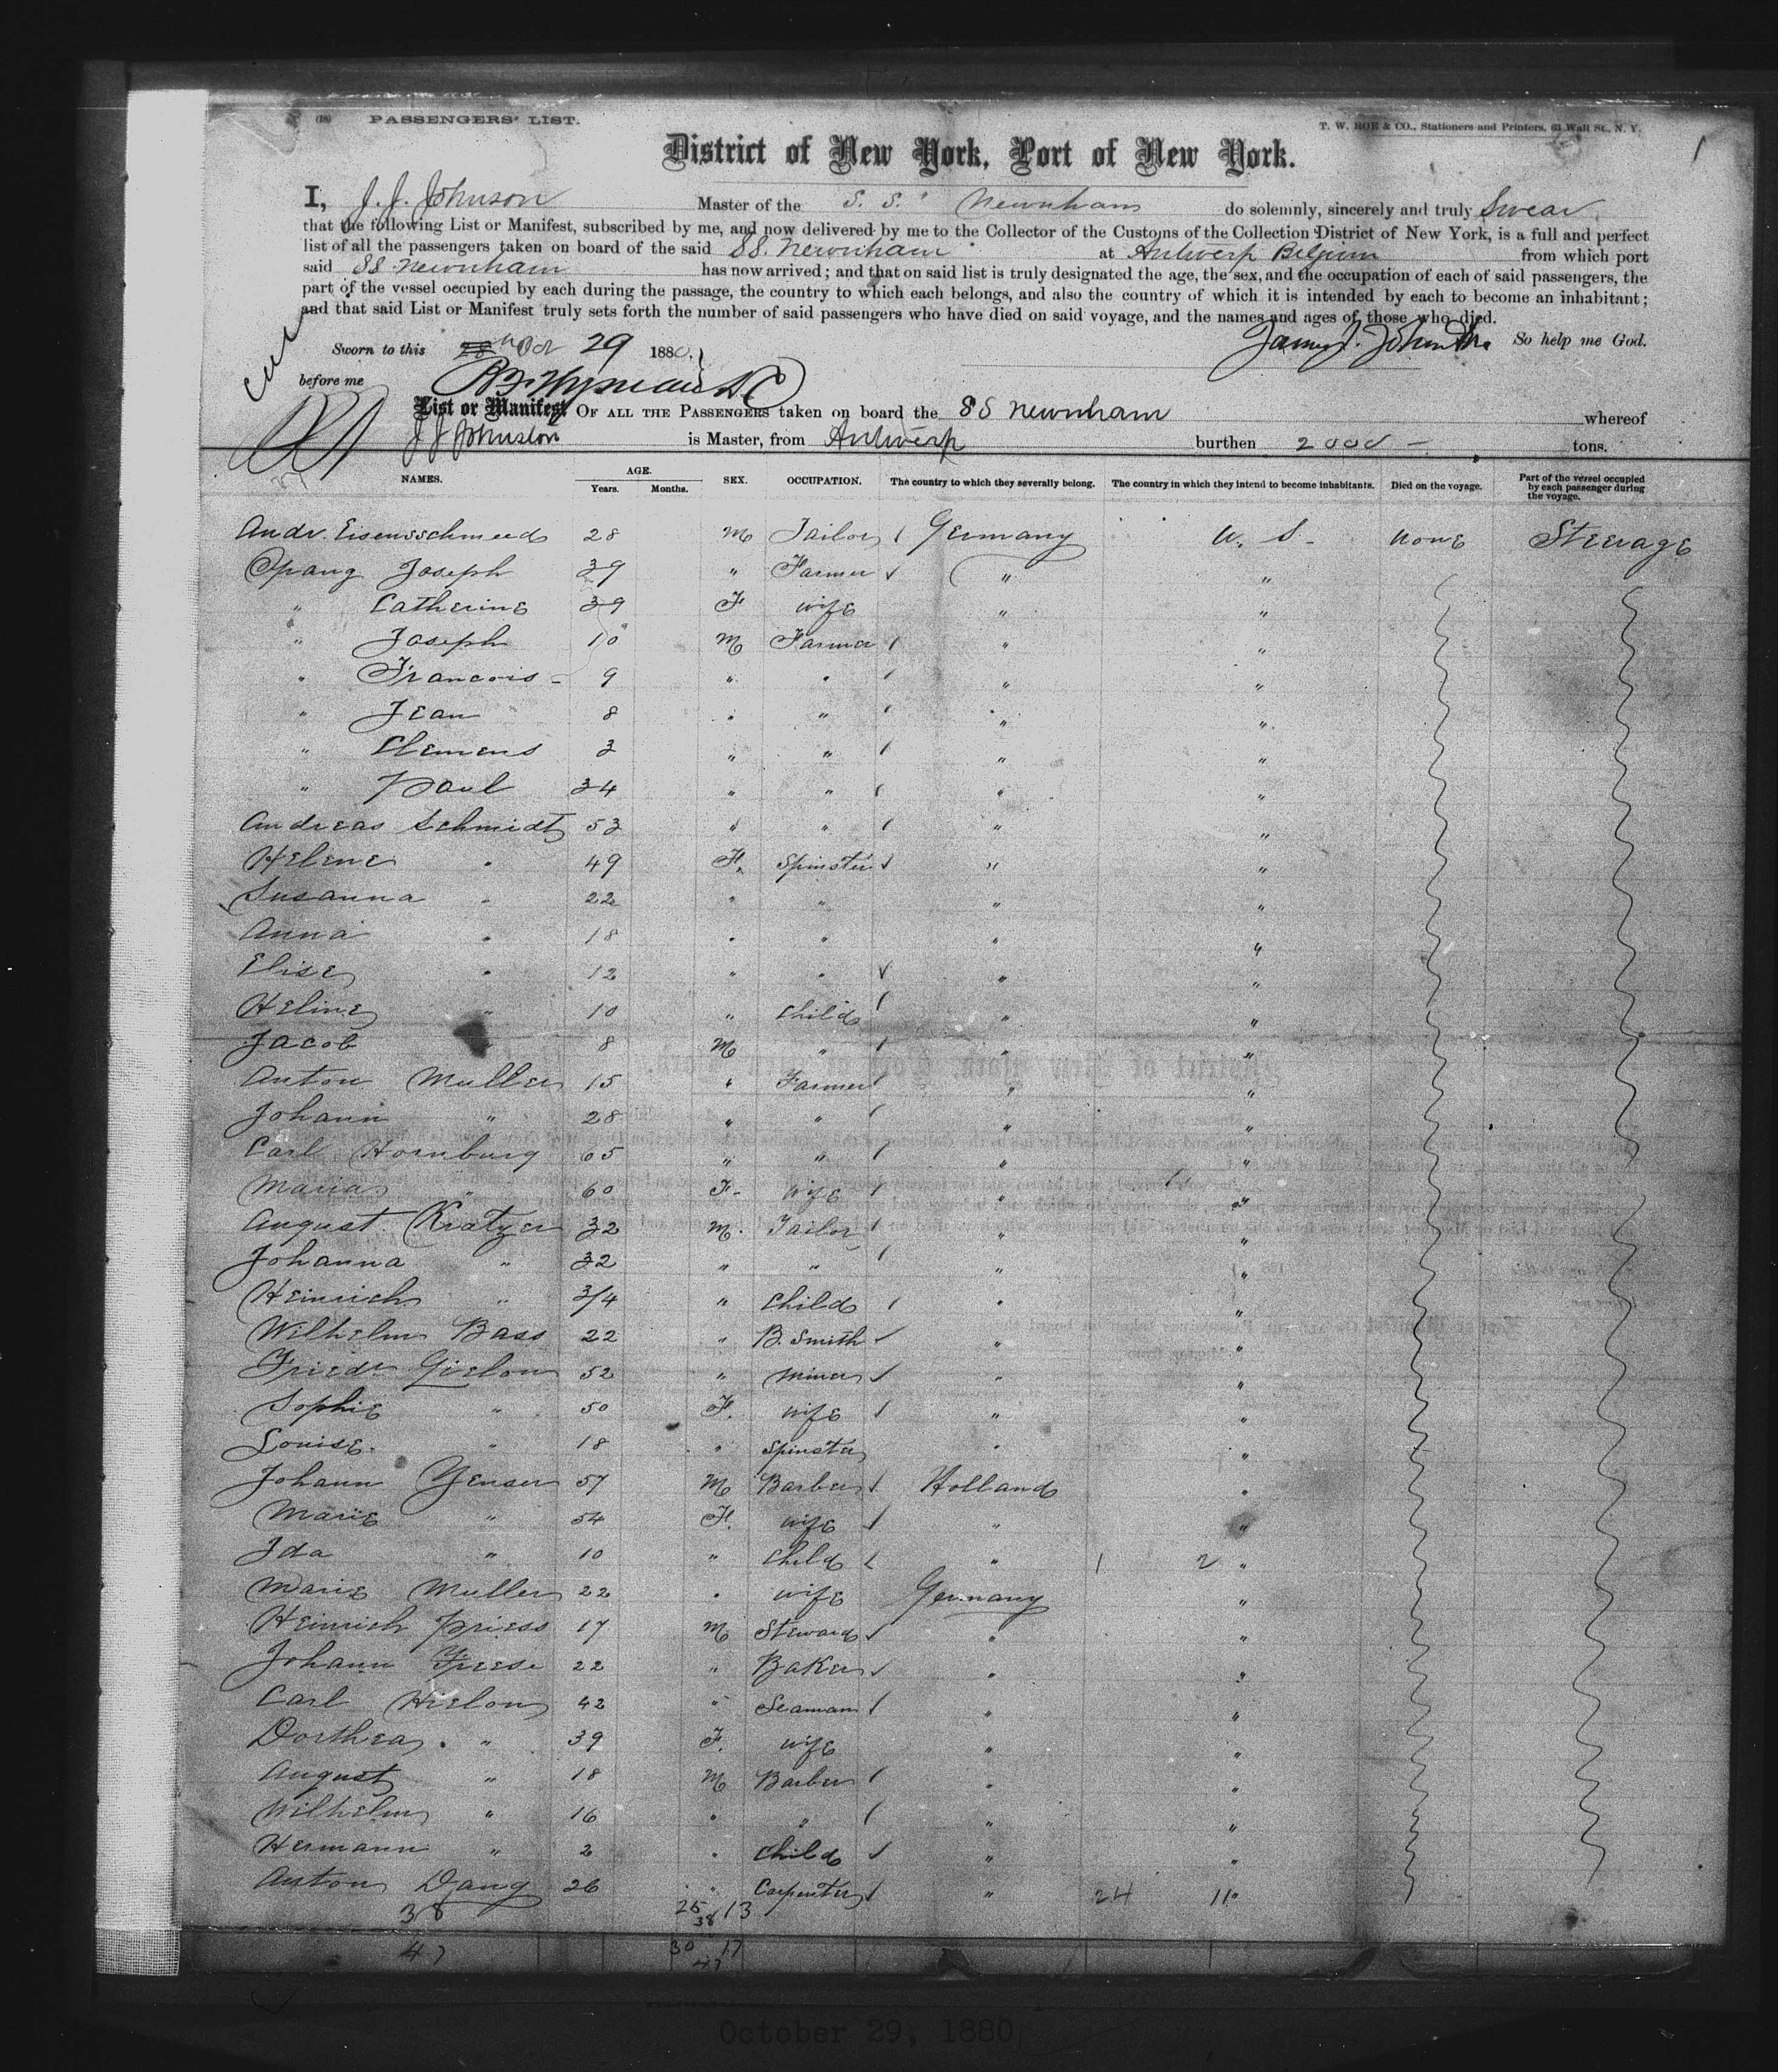 (18) PASSENGERS' LIST.
T. W. ROE & CO., Stationers and Printers, 61 Wall St., N. Y.
1
District of New York, Port of New York.
I, J. J. Johnson Master of the S. S. Newnham do solemnly, sincerely and truly Swear
that the following List or Manifest, subscribed by me, and now delivered by me to the Collector of the Customs of the Collection District of New York, is a full and perfect
list of all the passengers taken on board of the said SS. Newnham at Antwerp Belgium from which port
said SS Newnham has now arrived; and that on said list is truly designated the age, the sex, and the occupation of each of said passengers, the
part of the vessel occupied by each during the passage, the country to which each belongs, and also the country of which it is intended by each to become an inhabitant;
and that said List or Manifest truly sets forth the number of said passengers who have died on said voyage, and the names and ages of those who died.
Sworn to this Oct 29 1880. So help me God.
before me
List or Manifest OF ALL THE PASSENGERS taken on board the SS Newnham whereof
J J Johnson is Master, from Antwerp burthen 2000 - tons.
NAMES. AGE. Years. Months. SEX. OCCUPATION. The country to which they severally belong. The country in which they intend to become inhabitants. Died on the voyage. Part of the vessel occupied by each passenger during the voyage.
Andr. Eisensschmeed 28 M Tailor Germany U. S. None Steerage
Opang Joseph 39 " Farmer " "
" Catherine 39 F wife " "
" Joseph 10 M Farmer " "
" Francois 9 " " " "
" Jean 8 " " " "
" Clemens 3 " " " "
" Paul 34 " " " "
Andreas Schmidt 53 " " " "
Helene " 49 F. Spinster " "
Susanna " 22 " " " "
Anna " 18 " " " "
Elise " 12 " " " "
Heline " 10 " Child " "
Jacob " 8 M " " "
Anton Muller 15 " Farmer " "
Johann " 28 " " " "
Carl Hornburg 65 " " " "
Maria " 60 F- wife " "
August Kratzer 32 M. Tailor " "
Johanna " 32 " " " "
Heinrich " 3/4 " Child " "
Wilhelm Bass 22 " B. Smith " "
Friedr Gielow 52 " Miner " "
Sophie " 50 F. wife " "
Louise. " 18 " Spinster " "
Johann Yenser 57 M Barber Holland "
Marie " 54 F. wife " "
Ida " 10 " Child " 1 2 "
Marie Muller 22 " wife Germany "
Heinrich Priess 17 M Steward " "
Johann Freese 22 " Baker " "
Carl Hielow 42 " Seaman " "
Dorthea " 39 F. wife " "
August " 18 M Barber " "
Wilhelm " 16 " " " "
Hermann " 2 " Child " "
Anton Dang 26 " Carpenter " 24 11 "
38 25 13
38
47 30 17
47
October 29, 1880